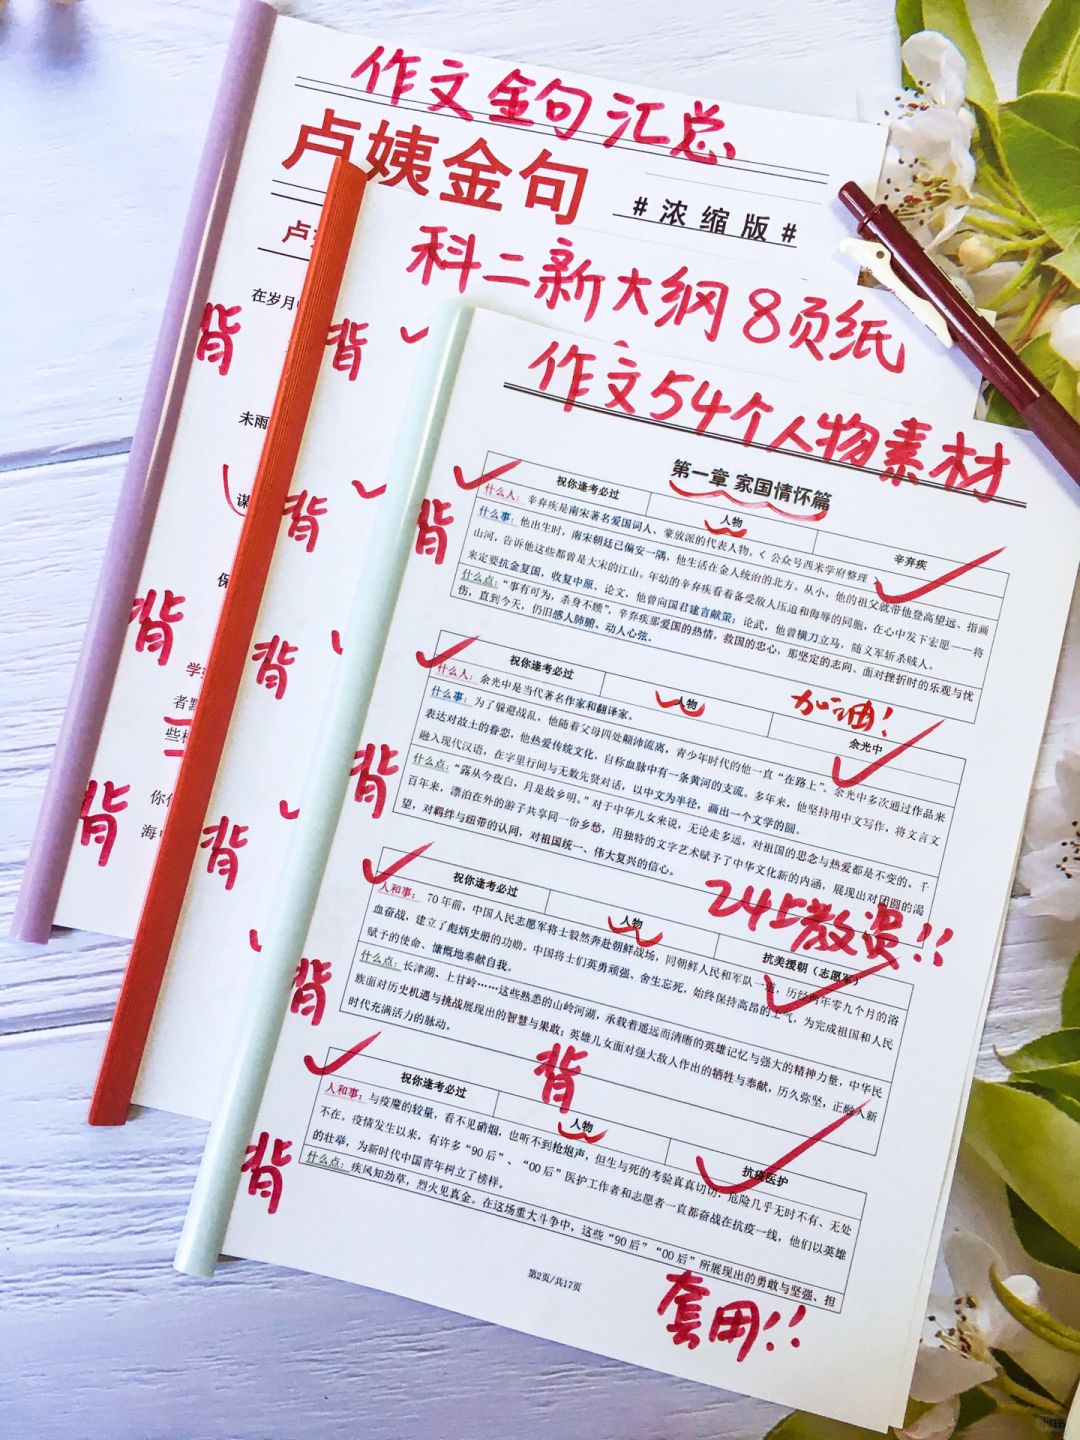 作文金句汇总
卢姨金句
#浓缩版#
在岁月
背
未雨
背
背
学
者
些
你
背
海
科二新大纲8页纸
背
背
背
背
作文54个人物素材
第一章 家国情怀篇
祝你逢考必过 人物 辛弃疾
什么人：辛弃疾是南宋著名爱国词人、豪放派的代表人物。（公众号西米学府整理）
背
什么事：他出生时，南宋朝廷已偏安一隅，他生活在金人统治的北方。从小，他的祖父就带他登高望远、指画
山河，告诉他这些都曾是大宋的江山。年幼的辛弃疾看着备受敌人压迫和侮辱的同胞，在心中发下宏愿——将
来定要抗金复国，收复中原。论文，他曾向国君建言献策；论武，他曾横刀立马，随义军斩杀贼人。
什么点：“事有可为，杀身不顾”，辛弃疾那爱国的热情，救国的忠心，那坚定的志向、面对挫折时的乐观与忧
伤，直到今天，仍旧感人肺腑、动人心弦。
祝你逢考必过 人物 余光中
加油！
什么人：余光中是当代著名作家和翻译家。
什么事：为了躲避战乱，他随着父母四处颠沛流离，青少年时代的他一直“在路上”。余光中多次通过作品来
表达对故土的眷恋，他热爱传统文化，自称血脉中有一条黄河的支流。多年来，他坚持用中文写作，将文言文
融入现代汉语，在字里行间与无数先贤对话，以中文为半径，画出一个文学的圆。
背
什么点：“露从今夜白，月是故乡明。”对于中华儿女来说，无论走多远，对祖国的思念与热爱都是不变的。千
百年来，漂泊在外的游子共享同一份乡愁，用独特的文字艺术赋予了中华文化新的内涵，展现出对团圆的渴
望，对羁绊与纽带的认同，对祖国统一、伟大复兴的信心。
24上教资!!
祝你逢考必过 人物 抗美援朝（志愿军）
人和事：70年前，中国人民志愿军将士毅然奔赴朝鲜战场，同朝鲜人民和军队一道，历经两年零九个月的浴
血奋战，建立了彪炳史册的功勋。中国将士们英勇顽强、舍生忘死，始终保持高昂的士气，为完成祖国和人民
赋予的使命、慷慨地奉献自我。
背
什么点：长津湖、上甘岭……这些熟悉的山岭河湖，承载着遥远而清晰的英雄记忆与强大的精神力量，中华民
族面对历史机遇与挑战展现出的智慧与果敢；英雄儿女面对强大敌人作出的牺牲与奉献，历久弥坚，正融入新
时代充满活力的脉动。
背
祝你逢考必过 人物 抗疫医护
人和事：与疫魔的较量，看不见硝烟，也听不到枪炮声，但生与死的考验真真切切，危险几乎无时不有、无处
不在。疫情发生以来，有许多“90后”、“00后”医护工作者和志愿者一直都奋战在抗疫一线，他们以英雄
的壮举，为新时代中国青年树立了榜样。
背
什么点：疾风知劲草，烈火见真金。在这场重大斗争中，这些“90后”“00后”所展现出的勇敢与坚强、担
第2页/共17页
套用!!